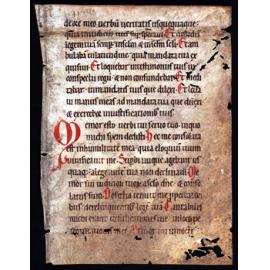 de ore meo verbū veritatis usquequaque:
quia in iudiciis tuis supersperavi Et custodiā
legem tuā semp in sclm & in sclm scli Et am
bulabā in latitudine: quia mandata tua ex
quisivi Et loquebar in testimoniis tuis in
conspectu regū: & non confundebar Et medi
tabar in mandatis tuis que dilexi Et leva
vi manus meas ad mandata tua que dilexi
& exercebar in iustificationib tuis
Memor esto verbi tui servo tuo in quo
michi spem dedisti Hec me consolata
est in humilitate mea: quia eloquiū tuum
vivificavit me Supbi inique agebant us
quequaq: a lege autē tua non declinavi Me
mor fui iudiciorū tuorū a sclo dne: & conso
latus sum Defectio tenuit me: p peccatori
bus derelinquentib legē tuā Cantabiles
michi erant iustificationes tue in loco